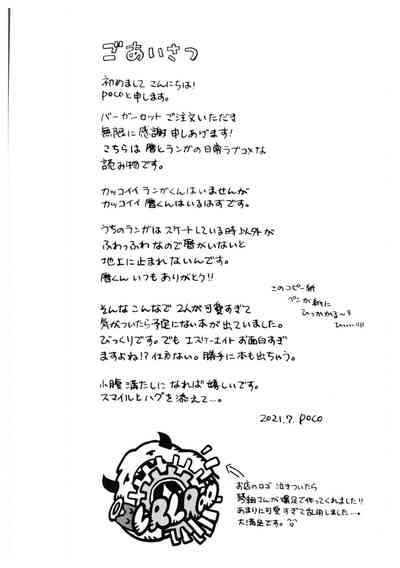 ごあいさつ
初めまして こんにちは!
pocoと申します。
バーガーセット でご注文いただき
無限に 感謝 申しあげます!
こちらは 暦とランガの日常ラブコメな
読み物です。
カッコイイ ランガくんはいませんが
カッコイイ 暦くんはいるはずです。
うちのランガは スケートしている時以外が
ふわっふわ なので 暦がいないと
地上に 止まれ ないんです。
暦くん いつも ありがとう!!
このコピー紙
ペンが紙に
ひっかかる〜
ひぃ……!!!
そんな こんなで 2人が可愛すぎて
気がついたら予定にない本が出ていました。
びっくりです。でも エスケーエイト お面白すぎ
ますよね!? 仕方ない。勝手に本も出ちゃう。
小腹 満たしに なれば 嬉しいです。
スマイルとハグを 添えて…。
2021.7. poco
お店のロゴ 泣きついたら
さんが爆速で作ってくれました!!
あまりに可愛すぎて乱用しました…。
大満足です。